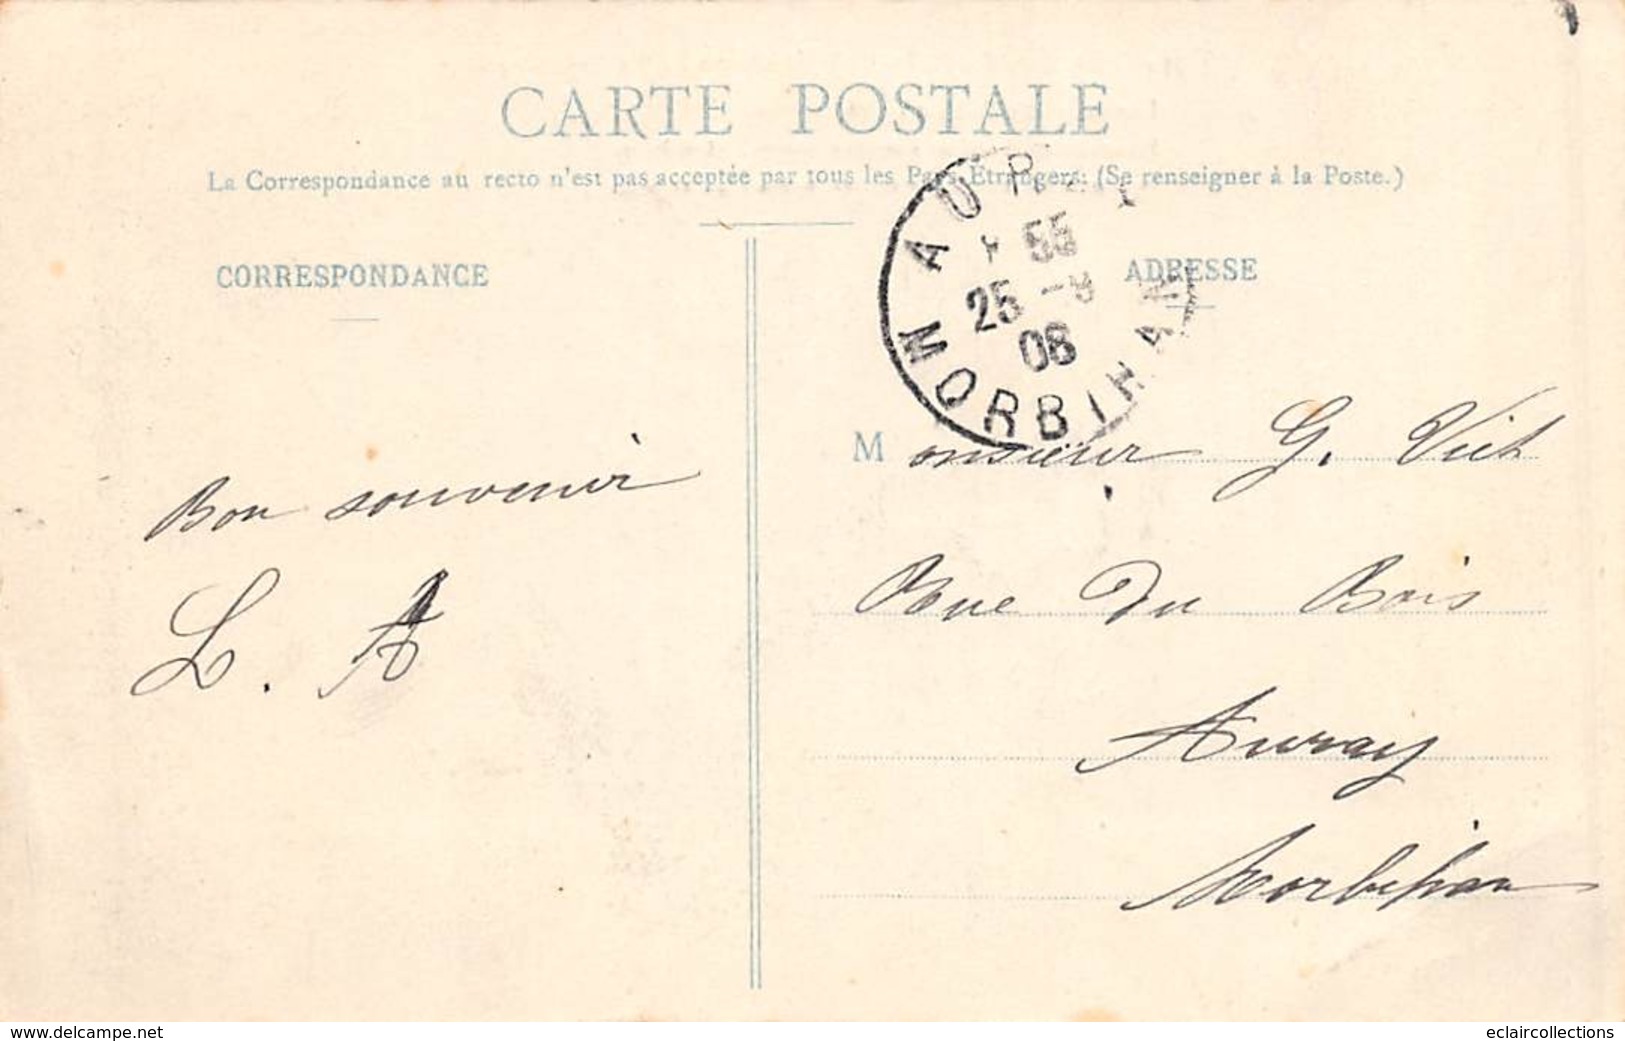 CARTE POSTALE
La Correspondance au recto n'est pas acceptée par tous les Pays Étrangers: (Se renseigner à la Poste.)
CORRESPONDANCE
ADRESSE
55
25 -9
08
MORBIHAN
Bon souvenir
L. A
Monsieur G.
Rue Du Bois
Auray
Morbihan
www.delcampe.net
eclaircollections